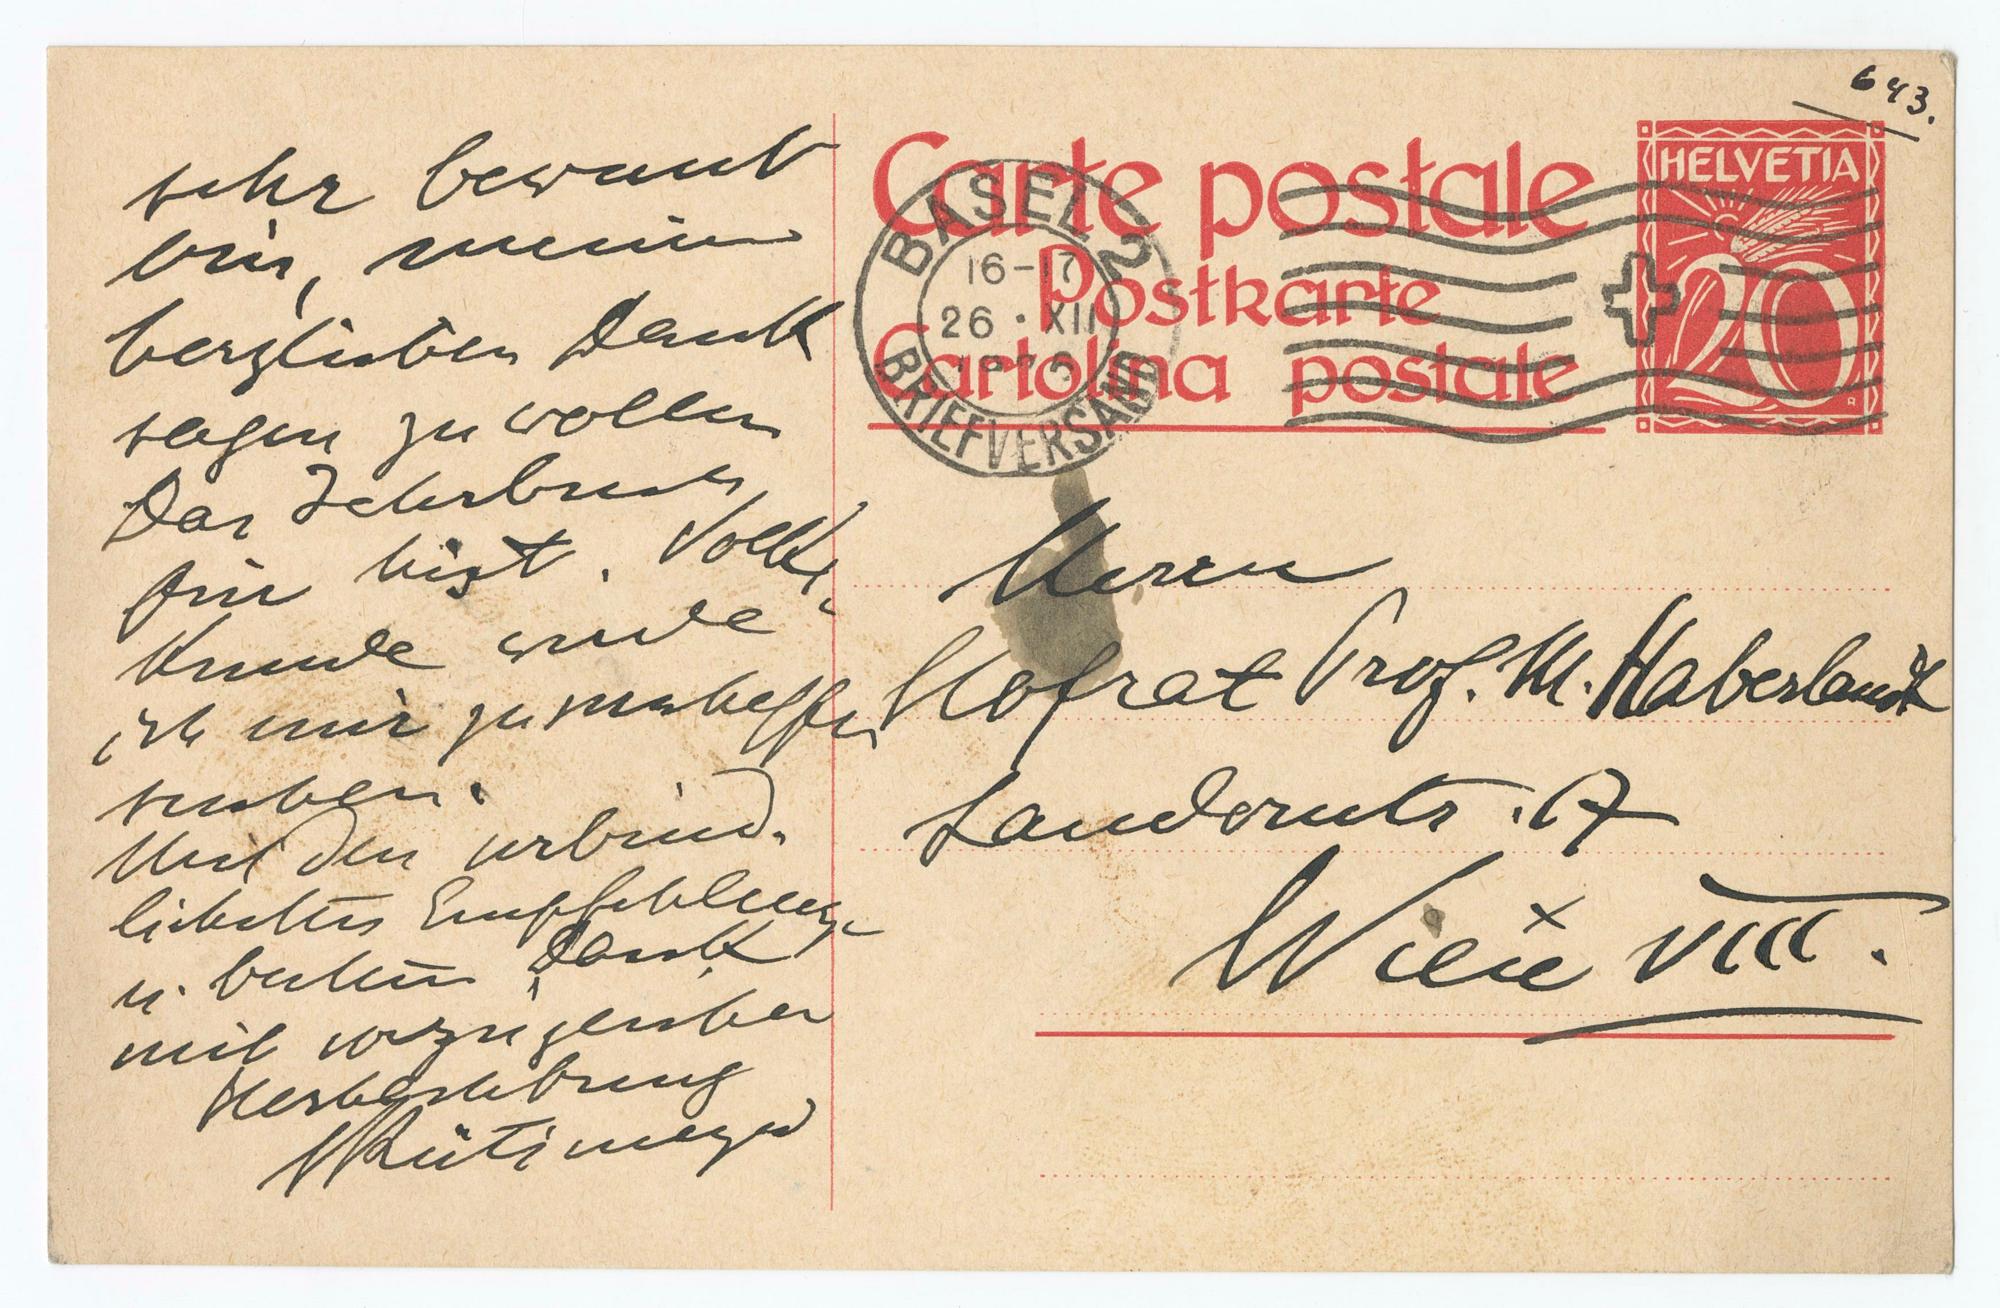 sehr bewandt
bin, meinen
herzlichen Dank
sagen zu wollen
Das Jahrbuch
für hist. Volks-
kunde werde
ich mir zu verschaffen
suchen.
Mit den verbind-
lichsten Empfehlungen
u. bestem Dank
mit vorzüglicher
Hochschätzung
Rütimeyer
643.
Carte postale
Postkarte
Cartolina postale
HELVETIA
20
BASEL 2
16-17
26 · XII
BRIEFVERSAND
Herrn
Hofrat Prof. M. Haberlandt
17
Wien VIII.